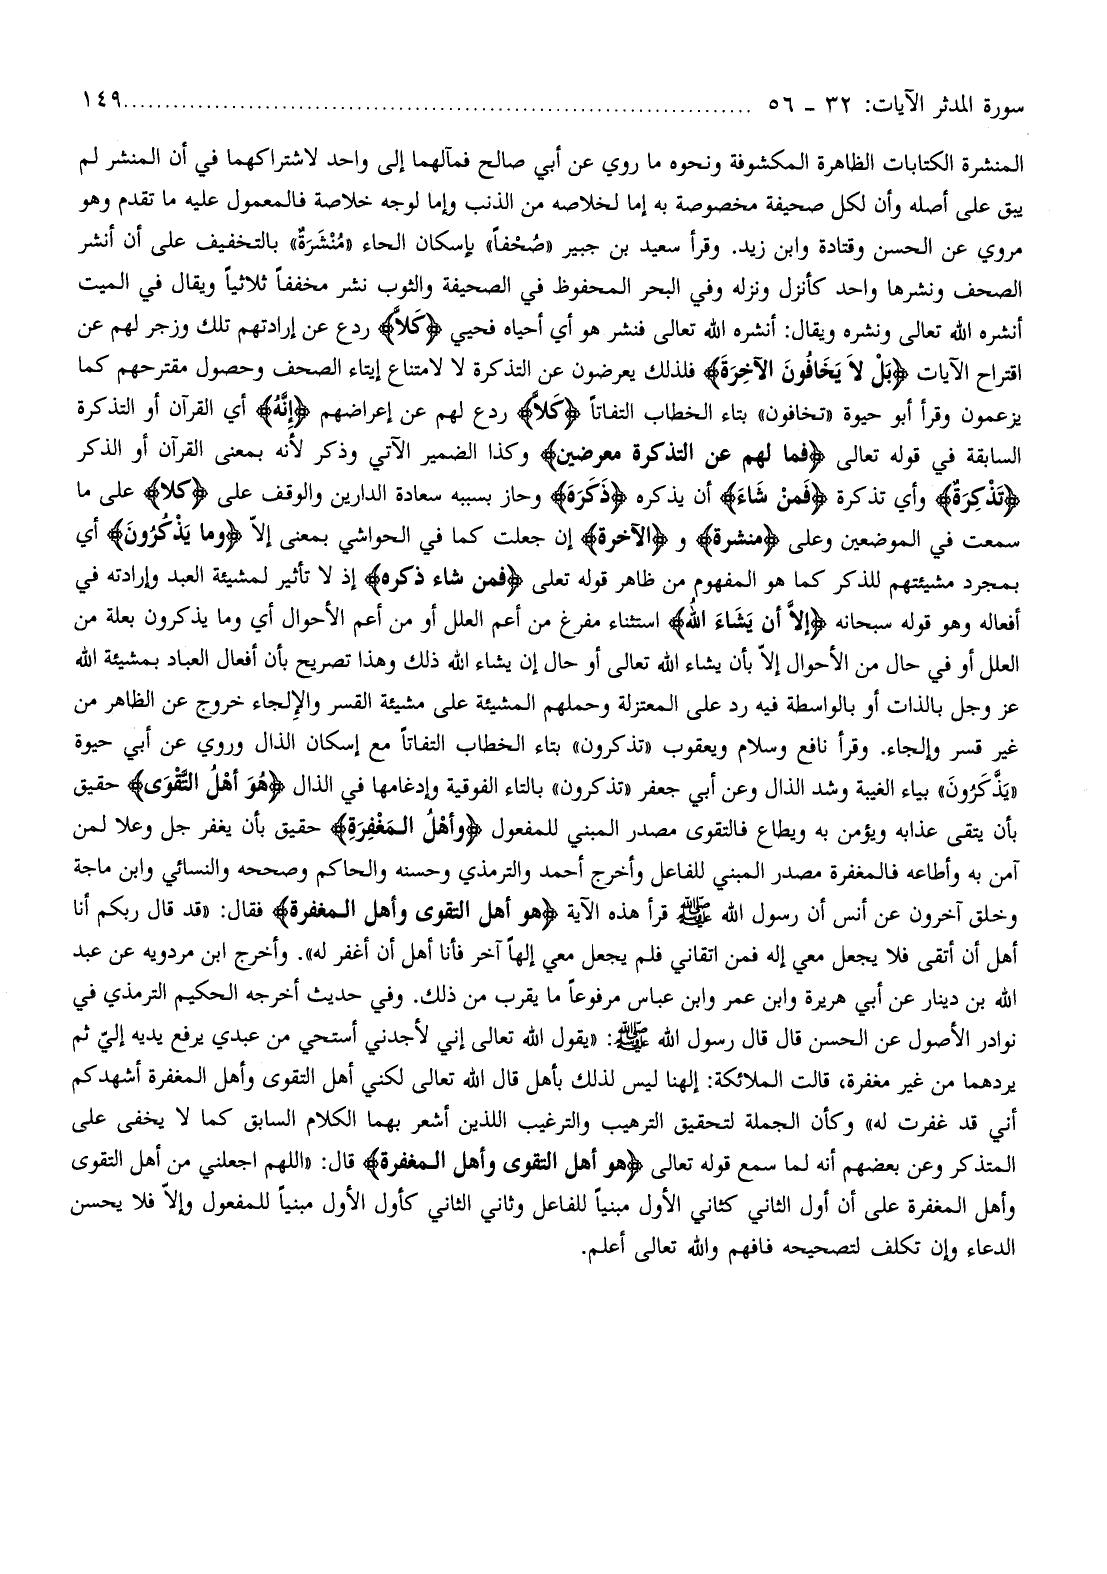 سورة المدثر الآيات: ٣٢ ـ ٥٦ ........................................................................ ١٤٩
المنشرة الكتابات الظاهرة المكشوفة ونحوه ما روي عن أبي صالح فمآلهما إلى واحد لاشتراكهما في أن المنشر لم
يبق على أصله وأن لكل صحيفة مخصوصة به إما لخلاصه من الذنب وإما لوجه خلاصة فالمعمول عليه ما تقدم وهو
مروي عن الحسن وقتادة وابن زيد. وقرأ سعيد بن جبير «صُحْفاً» بإسكان الحاء «مُنْشَرَةٌ» بالتخفيف على أن أنشر
الصحف ونشرها واحد كأنزل ونزله وفي البحر المحفوظ في الصحيفة والثوب نشر مخففاً ثلاثياً ويقال في الميت
أنشره الله تعالى ونشره ويقال: أنشره الله تعالى فنشر هو أي أحياه فحيي ﴿كَلاَّ﴾ ردع عن إرادتهم تلك وزجر لهم عن
اقتراح الآيات ﴿بَلْ لاَ يَخَافُونَ الآخِرَةَ﴾ فلذلك يعرضون عن التذكرة لا لامتناع إيتاء الصحف وحصول مقترحهم كما
يزعمون وقرأ أبو حيوة «تخافون» بتاء الخطاب التفاتاً ﴿كَلاَّ﴾ ردع لهم عن إعراضهم ﴿إِنَّهُ﴾ أي القرآن أو التذكرة
السابقة في قوله تعالى ﴿فما لهم عن التذكرة معرضين﴾ وكذا الضمير الآتي وذكر لأنه بمعنى القرآن أو الذكر
﴿تَذْكِرَةٌ﴾ وأي تذكرة ﴿فَمنْ شَاءَ﴾ أن يذكره ﴿ذَكَرَهَ﴾ وحاز بسببه سعادة الدارين والوقف على ﴿كلا﴾ على ما
سمعت في الموضعين وعلى ﴿منشرة﴾ و ﴿الآخرة﴾ إن جعلت كما في الحواشي بمعنى إلاّ ﴿وما يَذْكُرُونَ﴾ أي
بمجرد مشيئتهم للذكر كما هو المفهوم من ظاهر قوله تعلى ﴿فمن شاء ذكره﴾ إذ لا تأثير لمشيئة العبد وإرادته في
أفعاله وهو قوله سبحانه ﴿إلاَّ أن يَشَاءَ اللهُ﴾ استثناء مفرغ من أعم العلل أو من أعم الأحوال أي وما يذكرون بعلة من
العلل أو في حال من الأحوال إلاّ بأن يشاء الله تعالى أو حال إن يشاء الله ذلك وهذا تصريح بأن أفعال العباد بمشيئة الله
عز وجل بالذات أو بالواسطة فيه رد على المعتزلة وحملهم المشيئة على مشيئة القسر والإِلجاء خروج عن الظاهر من
غير قسر وإلجاء. وقرأ نافع وسلام ويعقوب «تذكرون» بتاء الخطاب التفاتاً مع إسكان الذال وروي عن أبي حيوة
«يَذَّكَرُونَ» بياء الغيبة وشد الذال وعن أبي جعفر «تذكرون» بالتاء الفوقية وإدغامها في الذال ﴿هُوَ أهْلُ التَّقْوَى﴾ حقيق
بأن يتقى عذابه ويؤمن به ويطاع فالتقوى مصدر المبني للمفعول ﴿وأهْلُ المَغْفِرَةِ﴾ حقيق بأن يغفر جل وعلا لمن
آمن به وأطاعه فالمغفرة مصدر المبني للفاعل وأخرج أحمد والترمذي وحسنه والحاكم وصححه والنسائي وابن ماجة
وخلق آخرون عن أنس أن رسول الله ﷺ قرأ هذه الآية ﴿هو أهل التقوى وأهل المغفرة﴾ فقال: «قد قال ربكم أنا
أهل أن أتقى فلا يجعل معي إله فمن اتقاني فلم يجعل معي إلهاً آخر فأنا أهل أن أغفر له». وأخرج ابن مردويه عن عبد
الله بن دينار عن أبي هريرة وابن عمر وابن عباس مرفوعاً ما يقرب من ذلك. وفي حديث أخرجه الحكيم الترمذي في
نوادر الأصول عن الحسن قال قال رسول الله ﷺ: «يقول الله تعالى إني لأجدني أستحي من عبدي يرفع يديه إليّ ثم
يردهما من غير مغفرة، قالت الملائكة: إلهنا ليس لذلك بأهل قال الله تعالى لكني أهل التقوى وأهل المغفرة أشهدكم
أني قد غفرت له» وكأن الجملة لتحقيق الترهيب والترغيب اللذين أشعر بهما الكلام السابق كما لا يخفى على
المتذكر وعن بعضهم أنه لما سمع قوله تعالى ﴿هو أهل التقوى وأهل المغفرة﴾ قال: «اللهم اجعلني من أهل التقوى
وأهل المغفرة على أن أول الثاني كثاني الأول مبنياً للفاعل وثاني الثاني كأول الأول مبنياً للمفعول وإلاّ فلا يحسن
الدعاء وإن تكلف لتصحيحه فافهم والله تعالى أعلم.